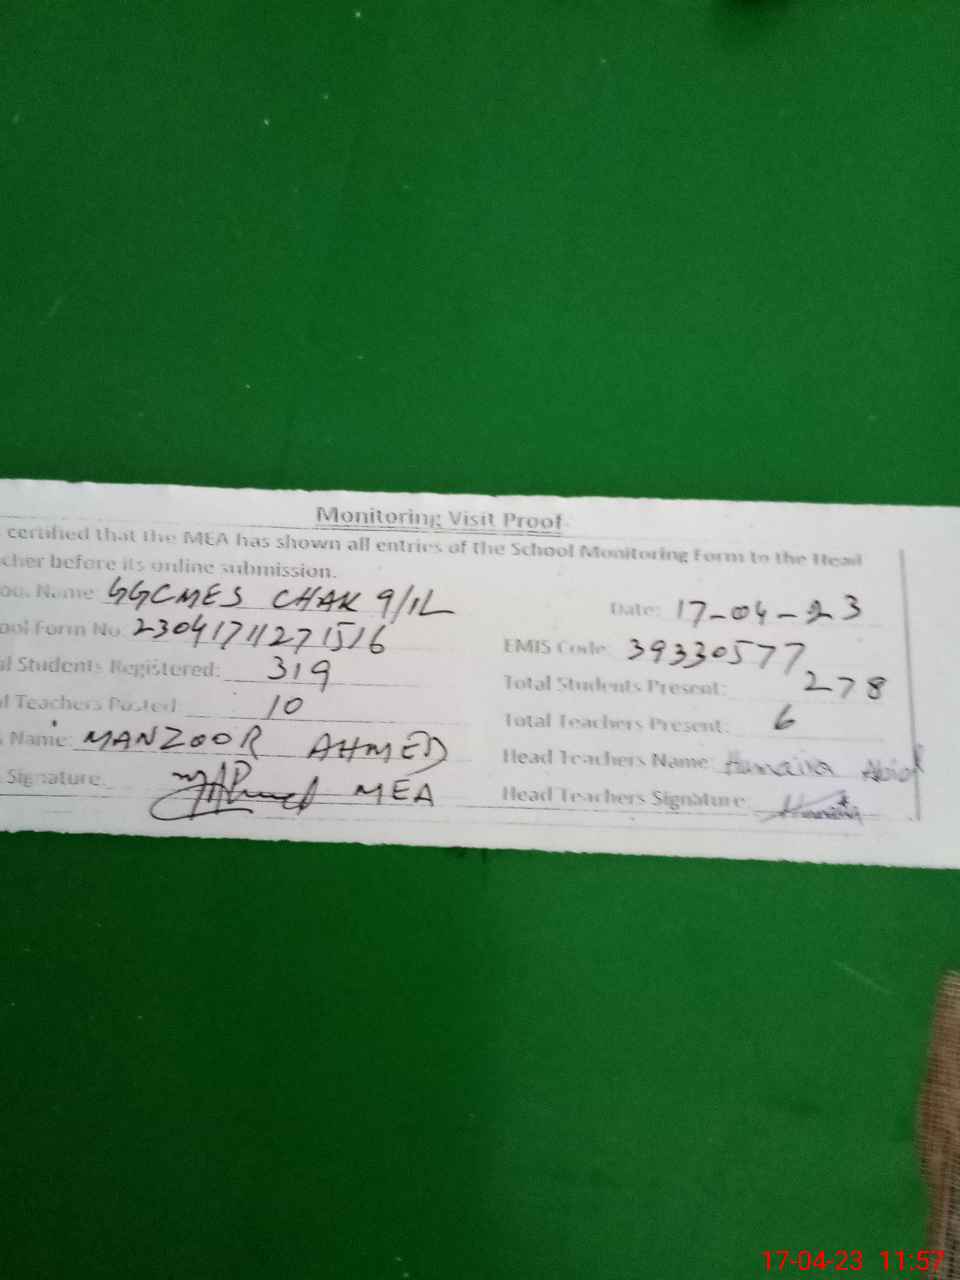 Monitoring Visit Proof
certified that the MEA has shown all entries of the School Monitoring Form to the Head
cher before its online submission.
ool Name GGCMES CHAK 9/1L Date: 17-04-23
ool Form No. 23041711271516 EMIS Code: 39330577
al Students Registered: 319 Total Students Present: 278
al Teachers Posted 10 Total Teachers Present: 6
Name: MANZOOR AHMED Head Teachers Name: Humaira Abid
Signature MEA Head Teachers Signature
17-04-23 11:57